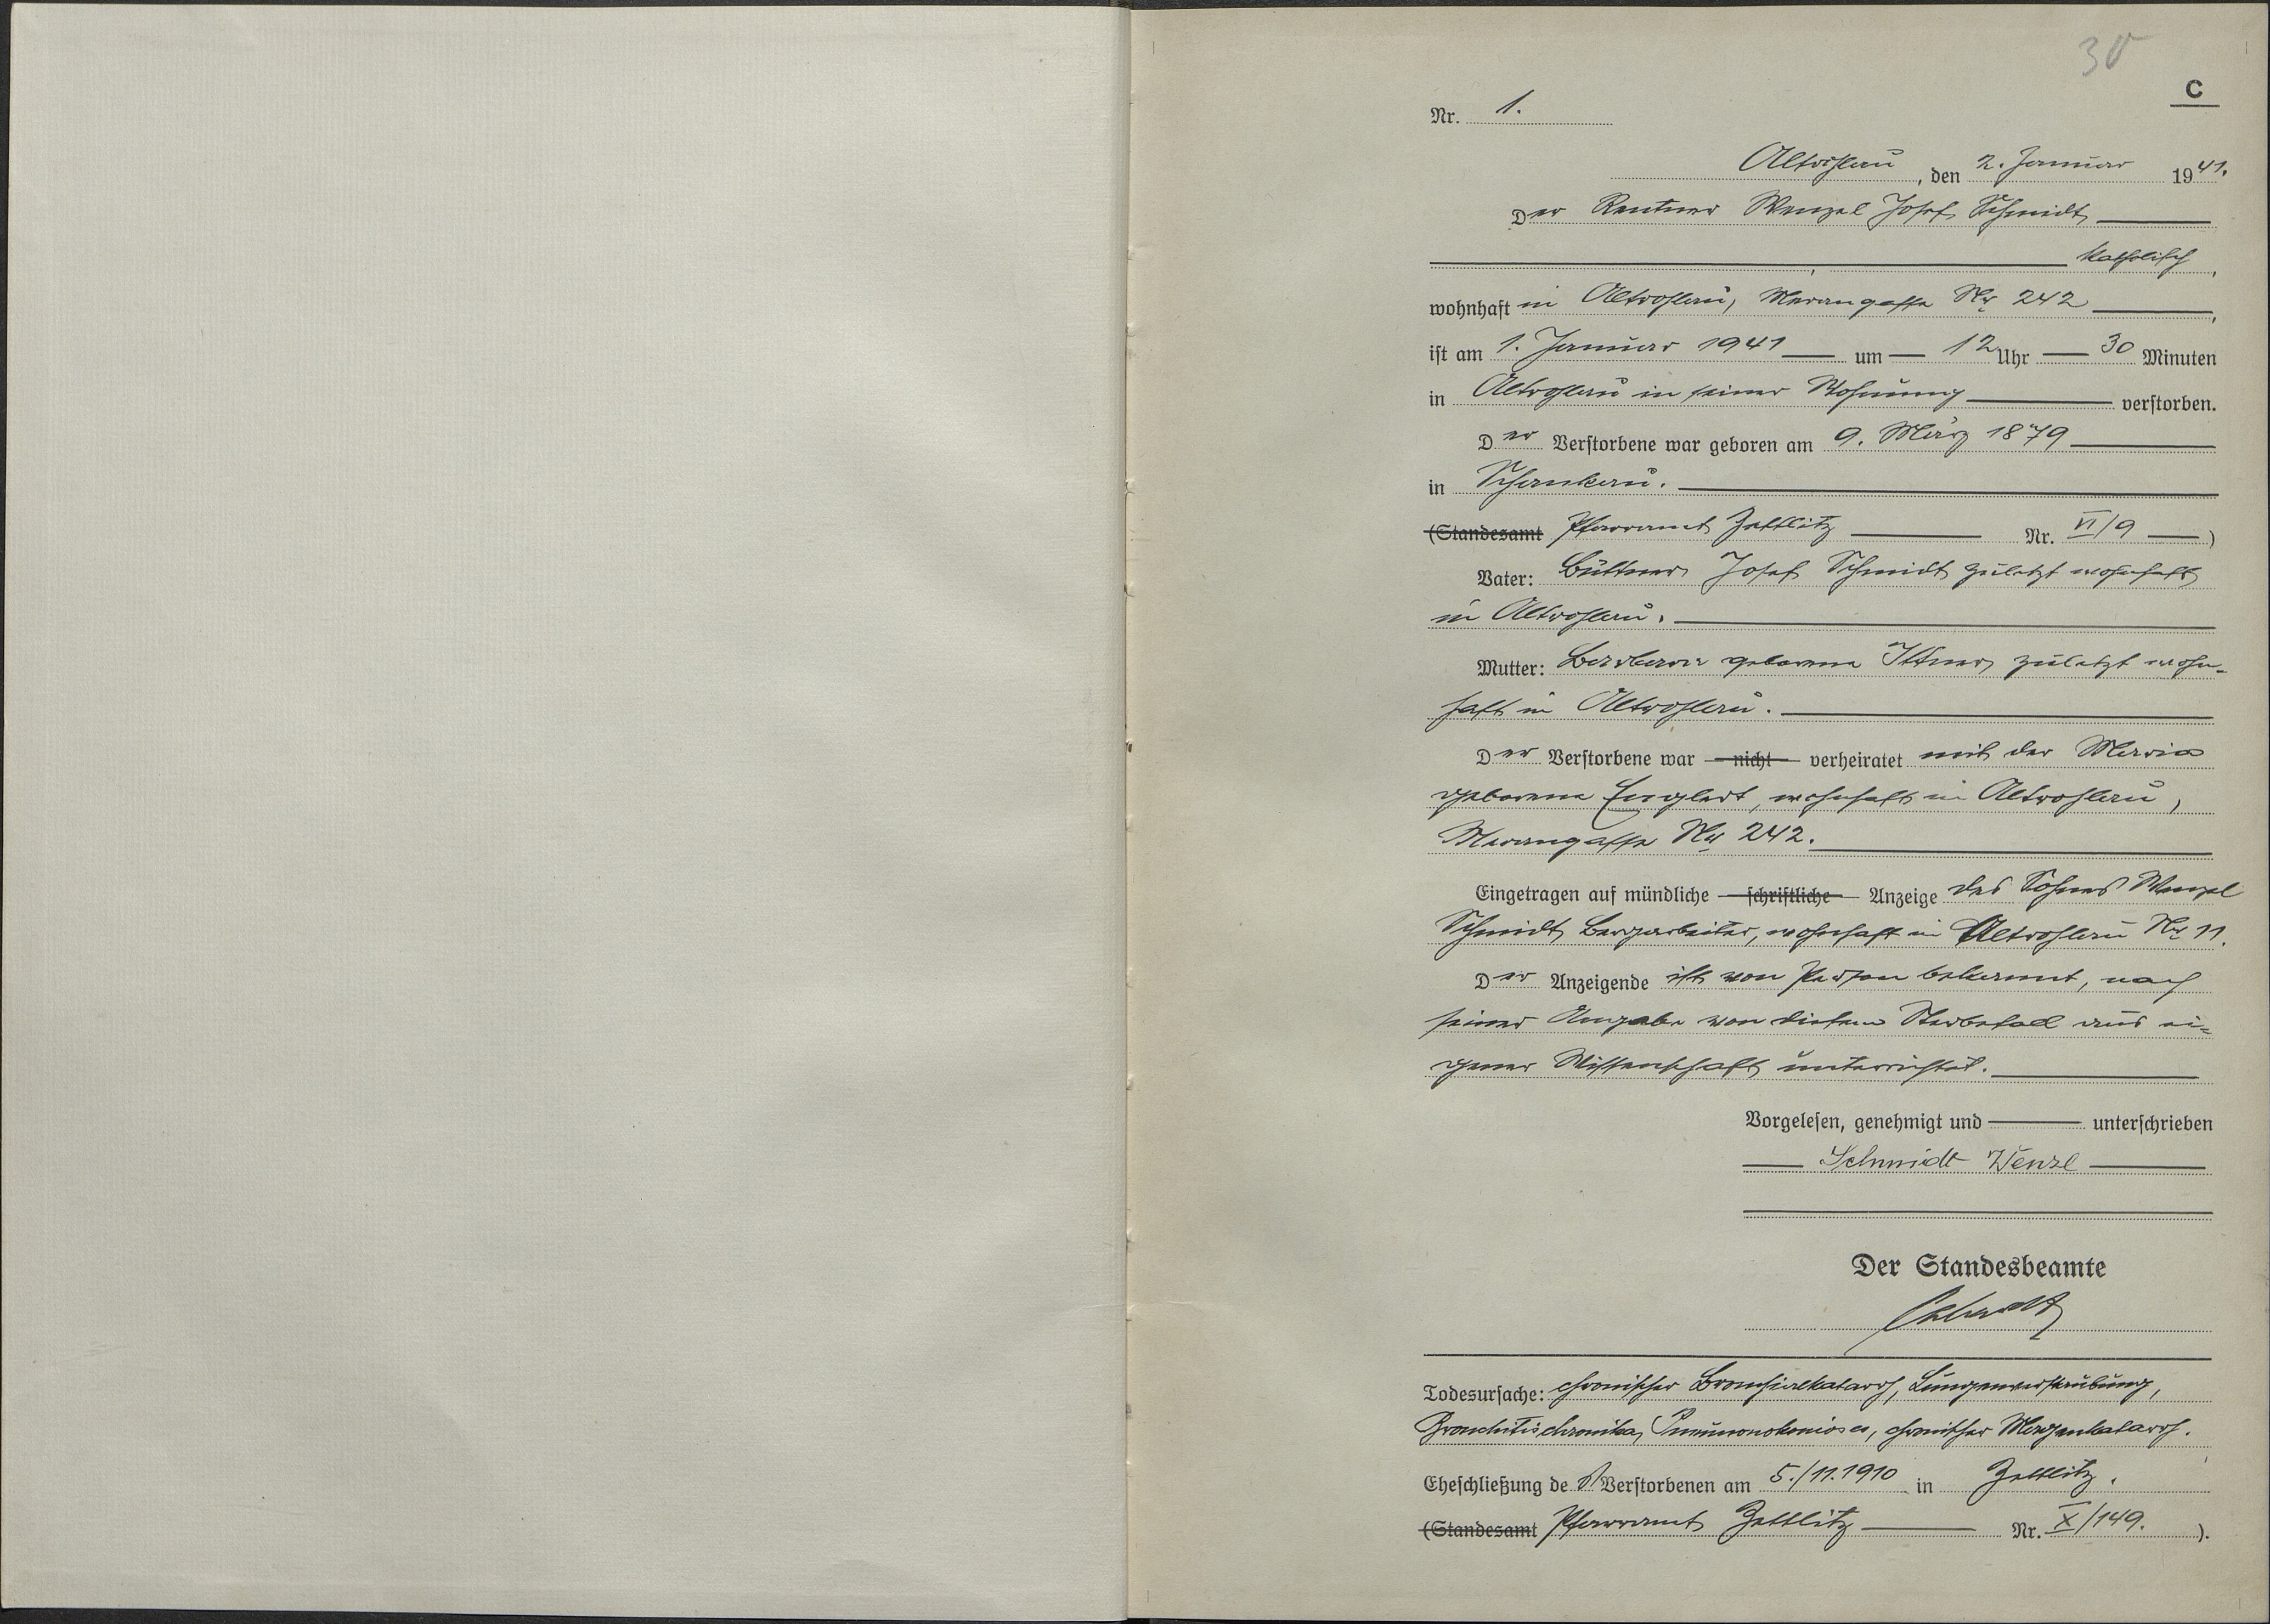 30
C
Nr. 1.
Altrohlau, den 2. Januar 1941.
Der Rentner Wenzel Josef Schmidt
katholisch,
wohnhaft in Altrohlau, Merangasse Nr 242,
ist am 1. Januar 1941 um 12 Uhr 30 Minuten
in Altrohlau in seiner Wohnung verstorben.
Der Verstorbene war geboren am 9. März 1879
in Schankau.
(Standesamt Pfarramt Zettlitz Nr. VI/9)
Vater: Büttner Josef Schmidt zuletzt wohnhaft
in Altrohlau.
Mutter: Barbara geborene Ittner, zuletzt wohn-
haft in Altrohlau.
Der Verstorbene war nicht verheiratet mit der Maria
geborene Englert, wohnhaft in Altrohlau,
Merangasse Nr 242.
Eingetragen auf mündliche schriftliche Anzeige des Sohnes Wenzel
Schmidt, Bergarbeiter, wohnhaft in Altrohlau Nr 11.
Der Anzeigende ist von Person bekannt, nach
seiner Angabe von diesem Sterbefall aus ei-
gener Wissenschaft unterrichtet.
Vorgelesen, genehmigt und unterschrieben
Schmidt Wenzl
Der Standesbeamte
Todesursache: chronischer Bronchialkatarrh, Lungenverstaubung,
Bronchitis chronika, chronischer Magenkatarrh.
Eheschließung des Verstorbenen am 5./11.1910 in Zettlitz.
(Standesamt Pfarramt Zettlitz Nr. X/149.).